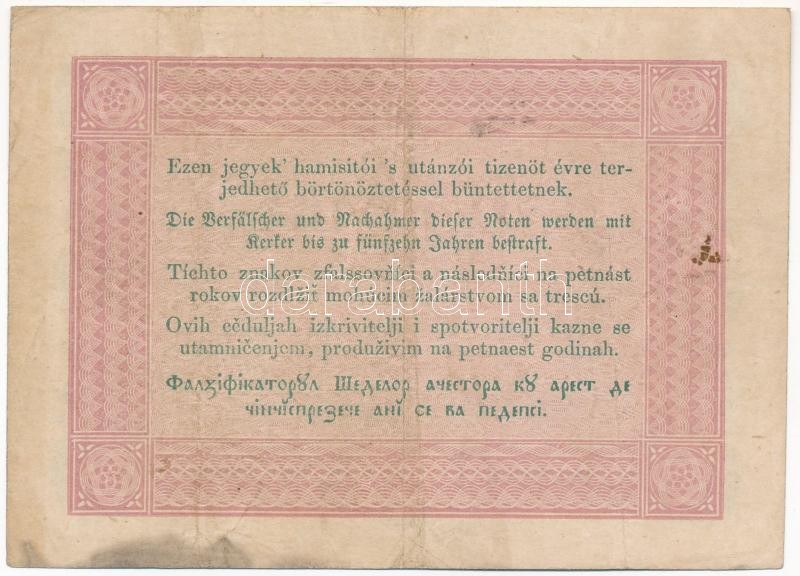 Ezen jegyek' hamisitói 's utánzói tizenöt évre ter-
jedhető börtönöztetéssel büntettetnek.
Die Verfälscher und Nachahmer dieser Noten werden mit
Kerker bis zu fünfzehn Jahren bestraft.
Tíchto znakov zfalssovňíci a následňíci na pètnást
rokov rozdĺžiť mohúcim žalárstvom sa trescú.
darabanth
Ovih cěduljah izkrivitelji i spotvoritelji kazne se
utamničenjem, produživim na petnaest godinah.
Фалзіфікаторꙋл Шеделор ачестора кꙋ арест де
чінчіспрезече анї се ва педепсі.